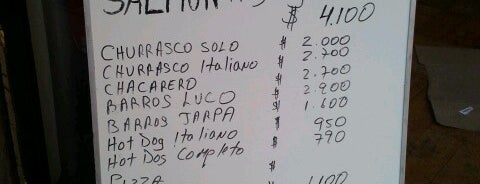 SALMON
$ 4.100
CHURRASCO SOLO $ 2.000
CHURRASCO Italiano $ 2.700
CHACARERO $ 2.700
BARROS LUCO $ 2.900
BARROS JARPA $ 1.600
Hot Dog Italiano $ 950
Hot Dog Completo $ 790
PIZZA $ 1.100